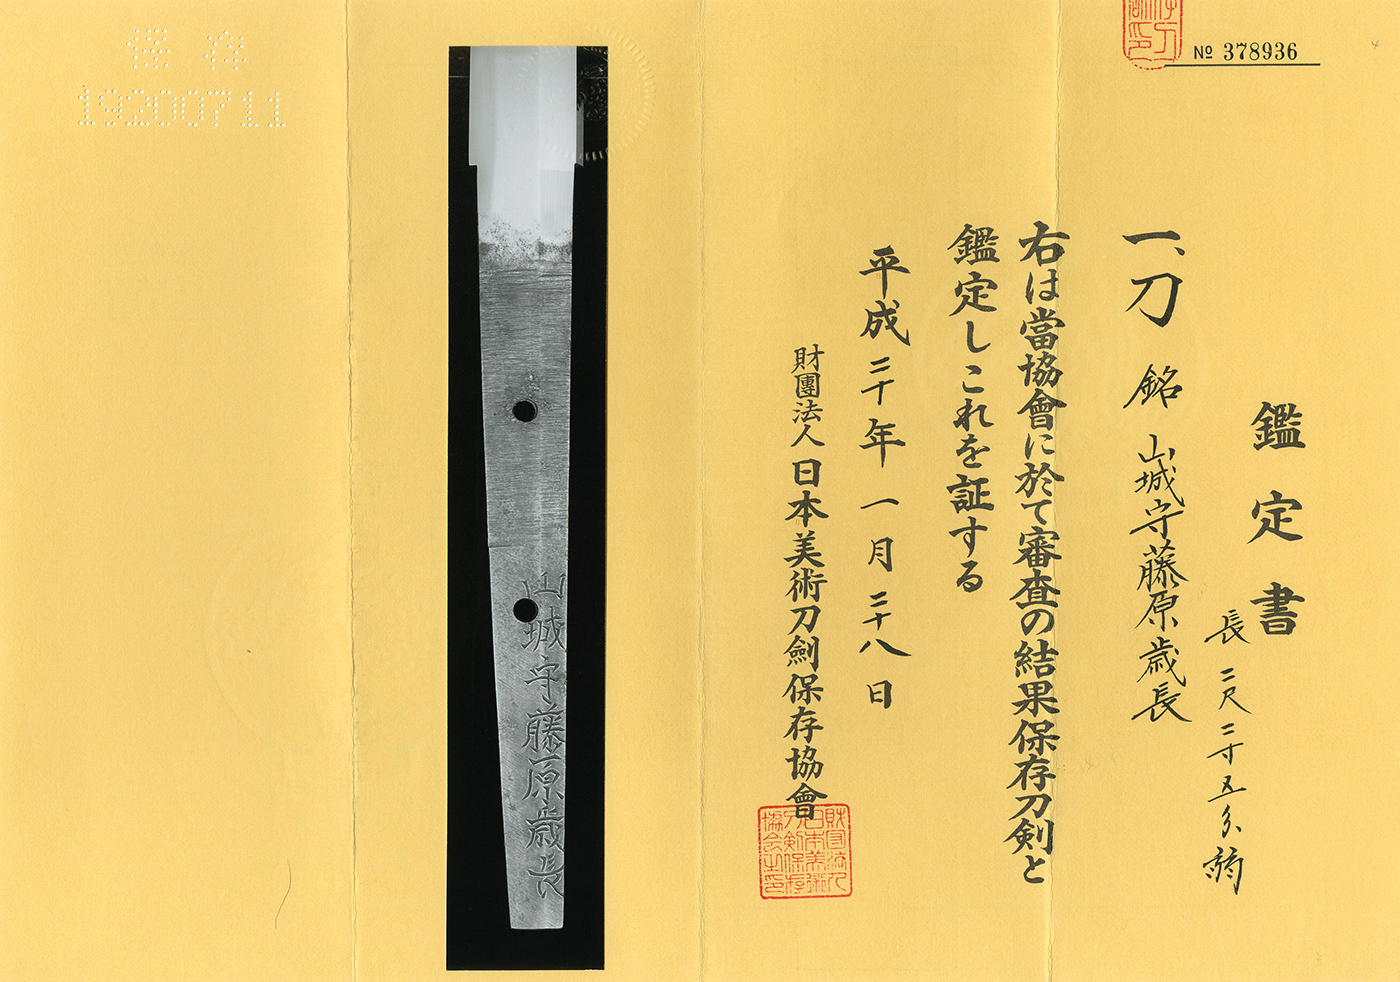 № 378936
鑑定書
長二尺二寸五分弱
一、刀 銘 山城守藤原歳長
右は當協會に於て審査の結果保存刀剣と
鑑定しこれを証する
平成二十年一月二十八日
財團法人 日本美術刀劍保存協會
財団法人日本美術刀剣保存協会之印
山城守藤原歳長
保存
19200711